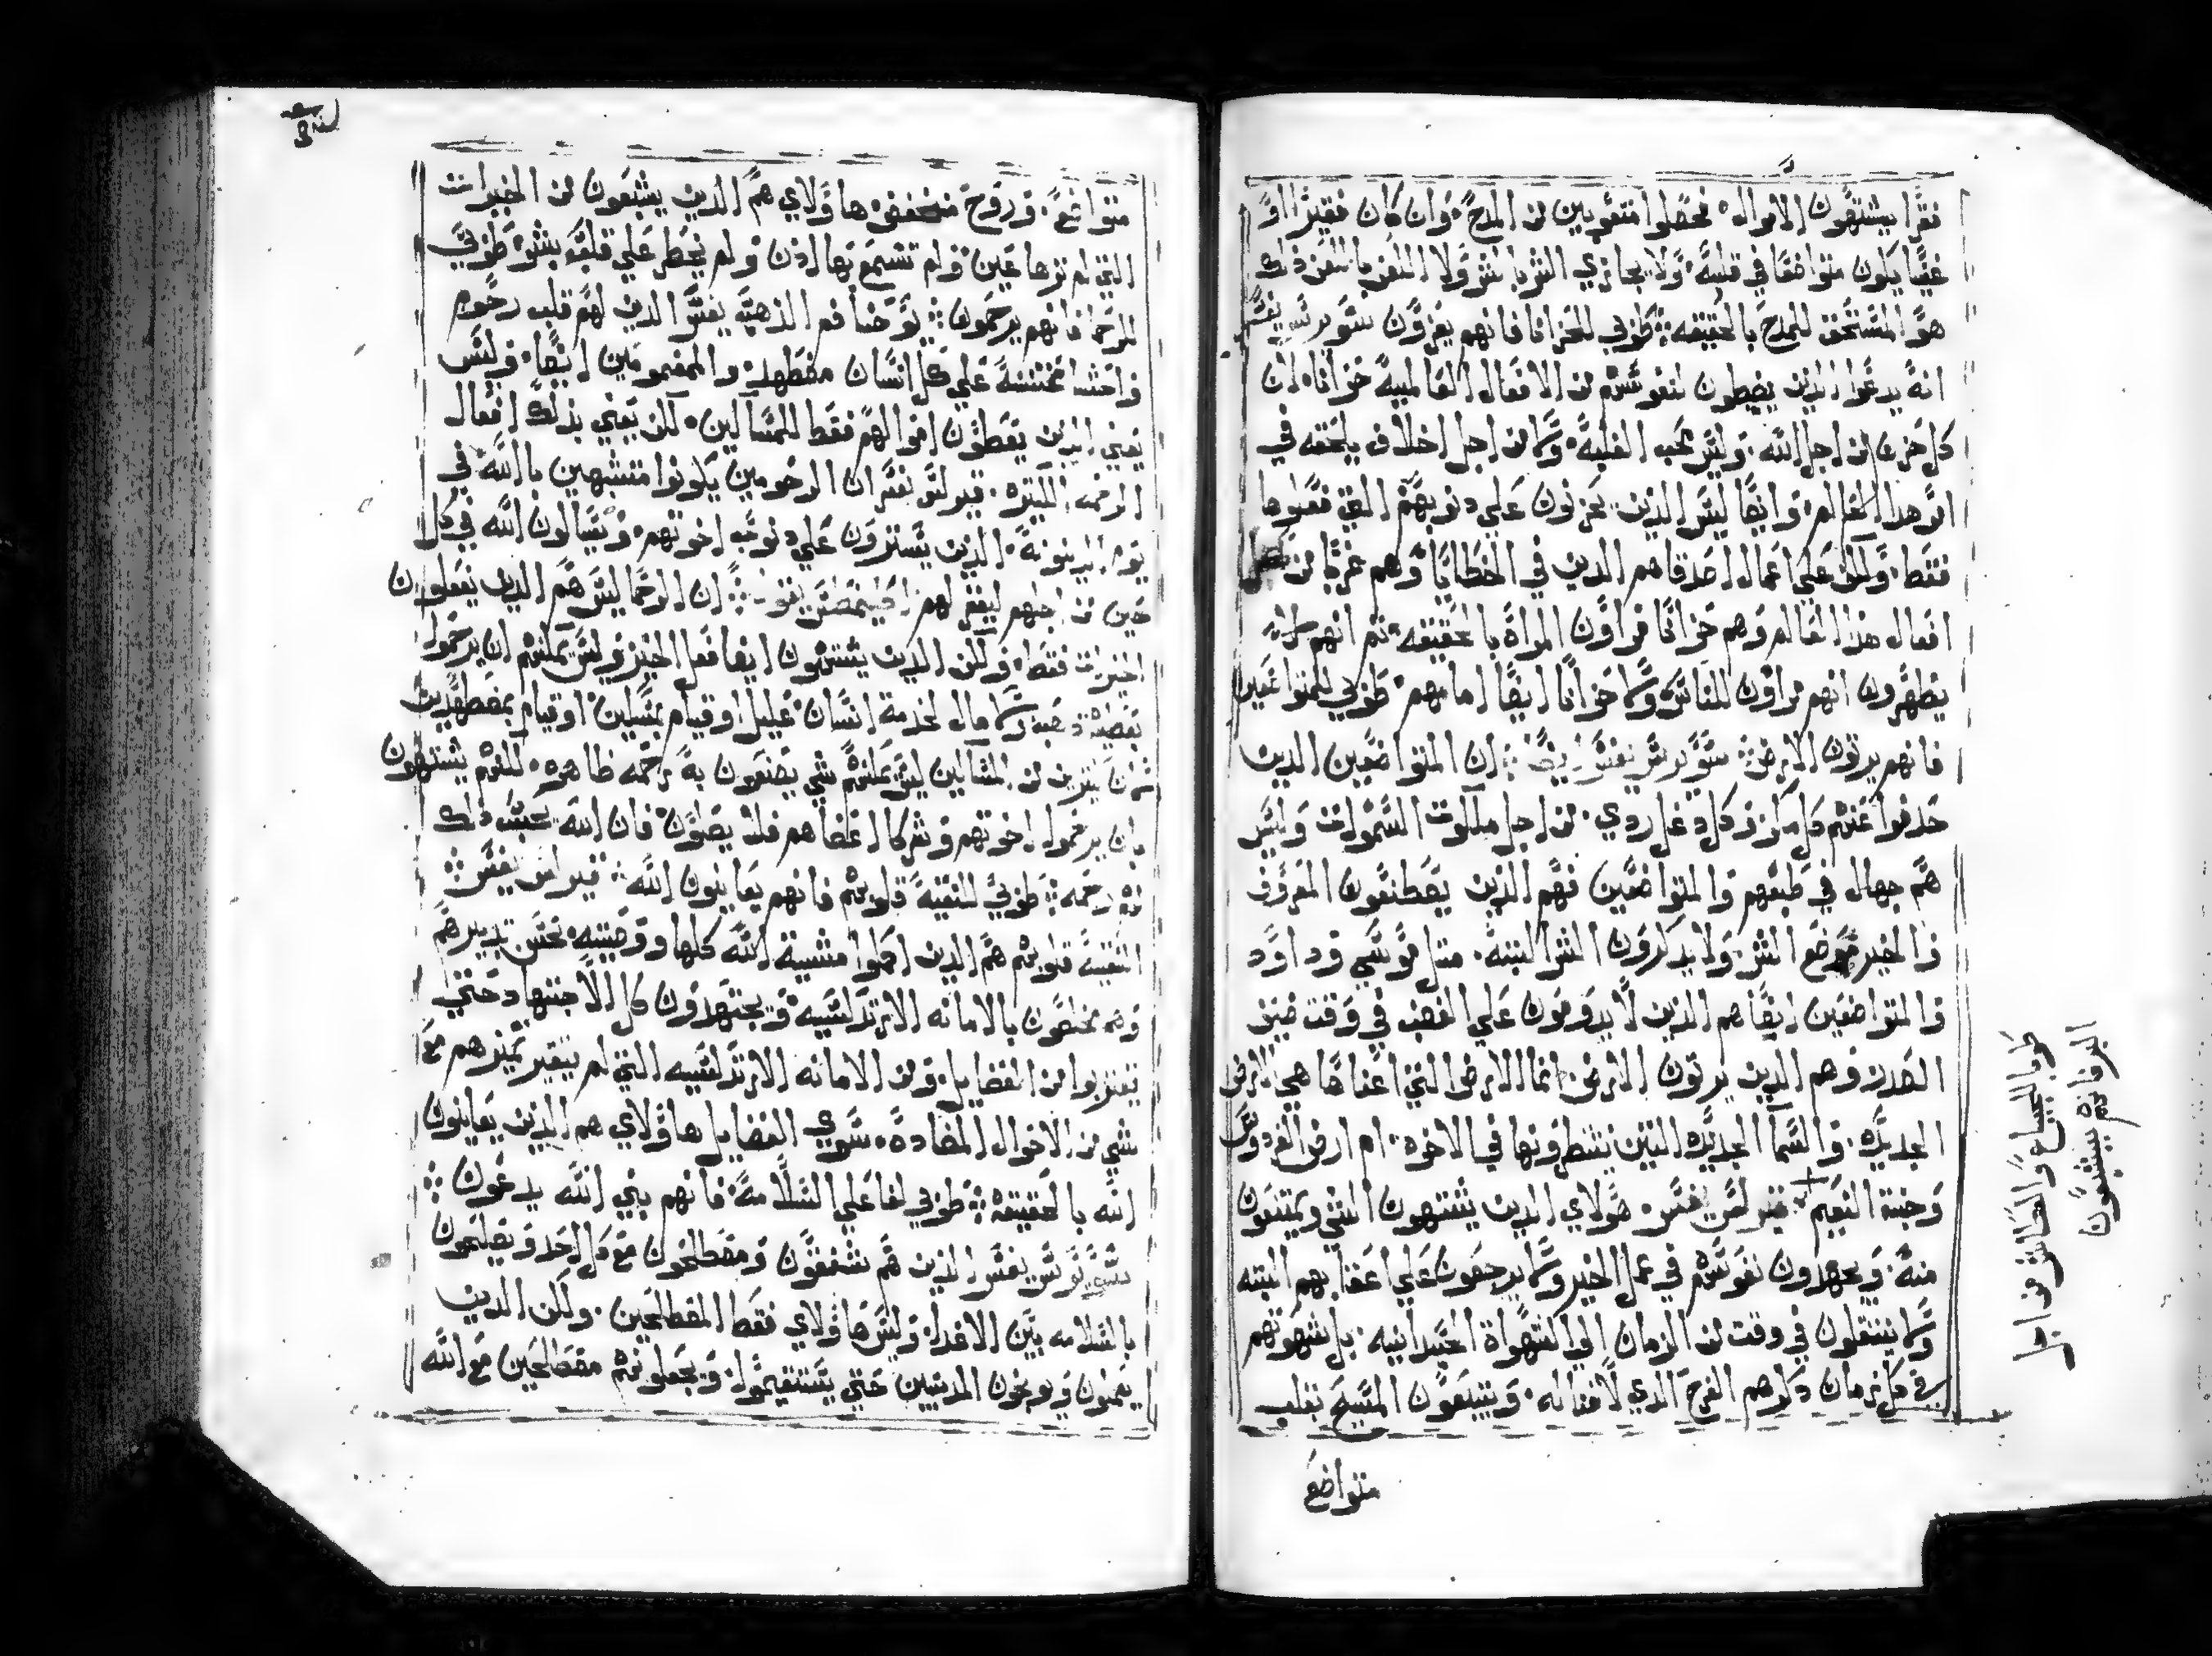 فقرا يشتهون الاموال. فحصلوا متعوبين من المدح. وان كان فقيرًا او
غنيًا يكون متواضعًا في قلبه. ولا يجازي الشر بالشر ولا اللعن باللعن ذلك
هو المستحق للمدح بالحقيقه ⁘ طوبي للحزانا فانهم يعزون سويرس يفسر
انه يدعوا الذين يضبطون نفوسهم من الافعال العالمية حزانا. ان
كل حزن من اجل الله. وليس بحب الغلبة. ولا من اجل اخلاف يلحقه في
امر هدا العالم. وايضًا ليس الذين يحزنون علي دنوبهم التي فعلوها
فقط. ولكن علي اعمال اصدقاهم الدين في الخطايا وهم غربا من كل
افعال هذا العالم وهم حزانا فراون المراة بالحقيقه. ثم انهم
يظهرون انهم مراون للناس ولا حزانا ايضًا امامهم. طوبي للمتواضعين
فانهم يرتون الارض ⁘ سويرس يفسر ايضا ⁘ ان المتواضعين الدين
حدفوا عنهم كل مكر وكل دغل ردي. من اجل ملكوت السموات وليس
هم جهال في طبعهم والمتواضعين فهم الذين يصطنعون المعروف
والخير موضع الشر. ولا يدكرون الشر البتة. متل موسي وداوود
والمتواضعين ايضًا هم الدين لا يدومون علي الغضب في وقت ضيق
الصدر وهم الدين يرتون الارض. انما الارض التي اعناها هي الارض
الجديده. والسما الجديده التين ننتظرونها في الاخره. ام ارض الفردوس
وجنة النعيم ⁘ كيرلس يفسر. هولاي الدين يشتهون الشي ويمتنعون
منه. ويجهدون نفوسهم في عمل الخير ولا يرجعون علي اعقابهم البته
ولا ينتقلون في وقت من الزمان الي الشهواة الجسدانيه. بل شهوتهم
في كل زمان دكرهم الفرح الدي لا فنا له. ويتبعون المسيح بقلب
متواضع
طوبا للجياع والعطاش من اجل
البر فانهم يشبعون
متواضع. وروح منخفض هاولاي هم الدين يشبعون من الخيرات
التي لم ترها عين. ولم تسمع بها ادن ولم يخطر علي قلب بشر. طوبي
للرحما فانهم يرحمون ⁘ يوحنا فم الذهبي يفسر الدين لهم قلب رحوم
واحشا متحننة علي كل انسان مضطهد. والمغمومين ايضًا. وليس
يعني الدين يعطون اموالهم فقط للمساكين. لكن يعني بذلك افعال
الرحمه الكتيره. كيرلس يفسر ان الرحومين يكونوا متشبهين بالله في
يوم الدينونة. الذين يسترون علي دنوب اخوتهم. ويسالون الله في كل
حين من اجلهم ليغفر لهم ⁘ ان الرحما ليس هم الدين يفعلون
الخيرات فقط. ولكن الدين يشتهون ايضا فعل الخير وليس يمكنهم ان يرحموا
بعطية دهب ولا مال لخدمة انسان عليل او قيام بمسكين او قيام بمضطهدين
لان كتيرين من المساكين ليس يمكنهم شي يصنعون به رحمه ظاهره. لكنهم يشتهون
بان يرحموا اخوتهم وشركا اعضاهم فلا يصلون فان الله يحسب ذلك
لهم رحمه ⁘ طوبي للنقية قلوبهم فانهم يعاينون الله ⁘ كيرلس يفسر ⁘
النقية قلوبهم هم الدين اكملوا مشية الله كلها ووصيته. بحسن تدبيرهم
وهم يحفظون بالامانه الارتدكسية ويجتهدون كل الاجتهاد حتي
يقتربوا من الفضايل. ومن الامانه الارتدكسيه التي لم يتغير تميزهم مع
شي من الاخوال المضادة. سوي الفضايل هاولاي هم الذين يعاينون
الله بالحقيقة ⁘ طوبي لفاعلي السلامة. فانهم بني الله يدعون ⁘
سويرس يفسر الذين هم يشفقون ومصطلحون مع كل احد ويصلحون
بالسلامه بين الاعدا. وليس هاولاي فقط المصطلحين. ولكن الدين
يعلمون ويوبخون المدنبين حتي يستقيموا. ويجعلونهم مصطلحين مع الله